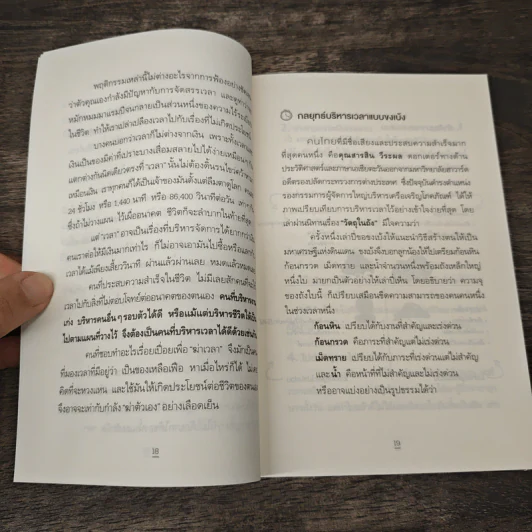 พฤติกรรมเหล่านี้ไม่ต่างอะไรจากการฟ้องอย่างชัด
ว่าตัวคุณเองกำลังมีปัญหากับการจัดสรรเวลา
หมักหมมมาแรมปีจนกลายเป็นส่วนหนึ่งของความไร้
ในชีวิต ทำให้เราเปล่าเปลืองเวลาไปกับเรื่องที่ไม่เกิดประโยชน์
บางคนบอกว่าเวลาก็ไม่ต่างจากเงิน เพราะทั้งเวลา
เงินเป็นของมีค่าที่เปราะบางเสื่อมสลายไปได้ง่ายเหมือน
แตกต่างกันนิดเดียวตรงที่ "เวลา" นั้นไม่ต้องดิ้นรนไขว่คว้า
เหมือนเงิน เราทุกคนก็ได้เป็นเจ้าของมันตั้งแต่ลืมตาดูโลก
24 ชั่วโมง หรือ 1,440 นาที หรือ 86,400 วินาทีต่อวัน
ซึ่งถ้าไม่วางแผน ไร้เผื่ออนาคต ชีวิตก็จะลำบากในท้ายที่สุด
แต่ "เวลา" อาจเป็นเรื่องที่บริหารจัดการได้ยากกว่า
คนเราต่อให้มีเงินมากเท่าไร ก็ไม่อาจเอามันไปซื้อหรือแลก
เวลาได้แม้เพียงเสี้ยววินาที ผ่านแล้วผ่านเลย หมดแล้วหมด
คนที่ประสบความสำเร็จในชีวิต ไม่มีเลยสักคนที่
เวลาไปกับสิ่งที่ไม่ตอบโจทย์ต่ออนาคตของตนเอง คนที่บริหาร
เก่ง บริหารคนอื่นๆ รอบตัวได้ดี หรือแม้แต่บริหารชีวิตให้เป็น
ไปตามแผนที่วางไว้ จึงต้องเป็นคนที่บริหารเวลาได้ดีด้วยเช่นกัน
คนที่ชอบทำอะไรเรื่อยเปื่อยเพื่อ "ฆ่าเวลา" จึงมักเป็น
ที่มองเวลาที่มีอยู่ว่า เป็นของเหลือเฟือ หาเมื่อไหร่ก็ได้ ไม่
คิดที่จะหวงแหน และใช้มันให้เกิดประโยชน์ต่อชีวิตของตน
จึงอาจจะเท่ากับกำลัง "ฆ่าตัวเอง" อย่างเลือดเย็น
18
กลยุทธ์บริหารเวลาแบบขงเบ้ง
คนไทยที่มีชื่อเสียงและประสบความสำเร็จมาก
ที่สุดคนหนึ่ง คือคุณสารสิน วีระผล ดอกเตอร์ทางด้าน
ประวัติศาสตร์และภาษาเอเชียตะวันออกจากมหาวิทยาลัยฮาร์วาร์ด
อดีตรองปลัดกระทรวงการต่างประเทศ ซึ่งปัจจุบันดำรงตำแหน่ง
รองกรรมการผู้จัดการใหญ่บริหารเครือเจริญโภคภัณฑ์ ได้ให้
ภาพเปรียบเทียบการบริหารเวลาไว้อย่างเข้าใจง่ายที่สุด โดย
เล่าผ่านนิทานเรื่อง "วัตถุในถัง" มีใจความว่า
ครั้งหนึ่งเล่าปี่ขอขงเบ้งให้แนะนำวิธีสร้างตนให้เป็น
มหาเศรษฐีแห่งดินแดน ขงเบ้งจึงบอกลูกน้องให้ไปเตรียมก้อนหิน
ก้อนกรวด เม็ดทราย และน้ำจำนวนหนึ่งพร้อมถังเหล็กใหญ่
หนึ่งใบ มายกเป็นตัวอย่างให้เล่าปี่เห็น โดยอธิบายว่า ความจุ
ของถังใบนี้ ก็เปรียบเสมือนขีดความสามารถของคนคนหนึ่ง
ในช่วงเวลาหนึ่ง
ก้อนหิน เปรียบได้กับงานที่สำคัญและเร่งด่วน
ก้อนกรวด คือภาระที่สำคัญแต่ไม่เร่งด่วน
เม็ดทราย เปรียบได้กับภาระที่เร่งด่วนแต่ไม่สำคัญ
และน้ำ คือหน้าที่ที่ไม่สำคัญและไม่เร่งด่วน
หรืออาจแบ่งอย่างเป็นรูปธรรมได้ว่า
19